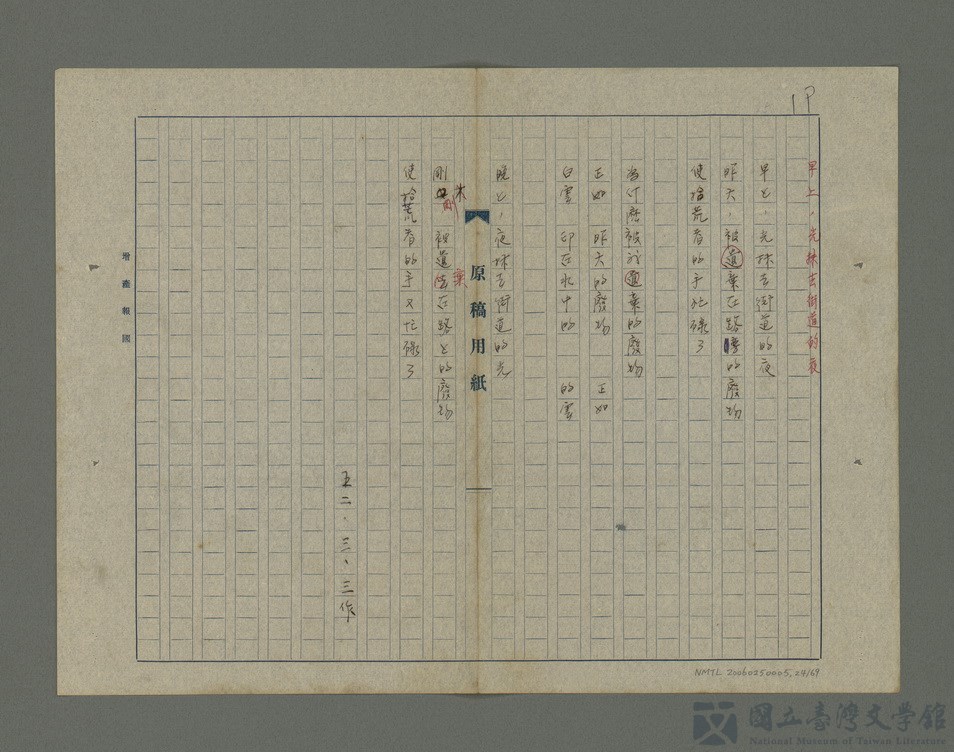 1P
早上，光抹去街道的夜
早上，光抹去街道的夜
昨天，被遺棄在路旁的廢物
使拾荒者的手忙碌了
為什麼被我遺棄的廢物
正如 昨天的廢物 正如
白雲 印在水中的 的雲
晚上，夜抹去街道的光
剛被遺棄在路上的廢物
使拾荒者的手又忙碌了
五二．三、三作
原稿用紙
增產報國
NMTL 20060250005.24/69
國立臺灣文學館
National Museum of Taiwan Literature